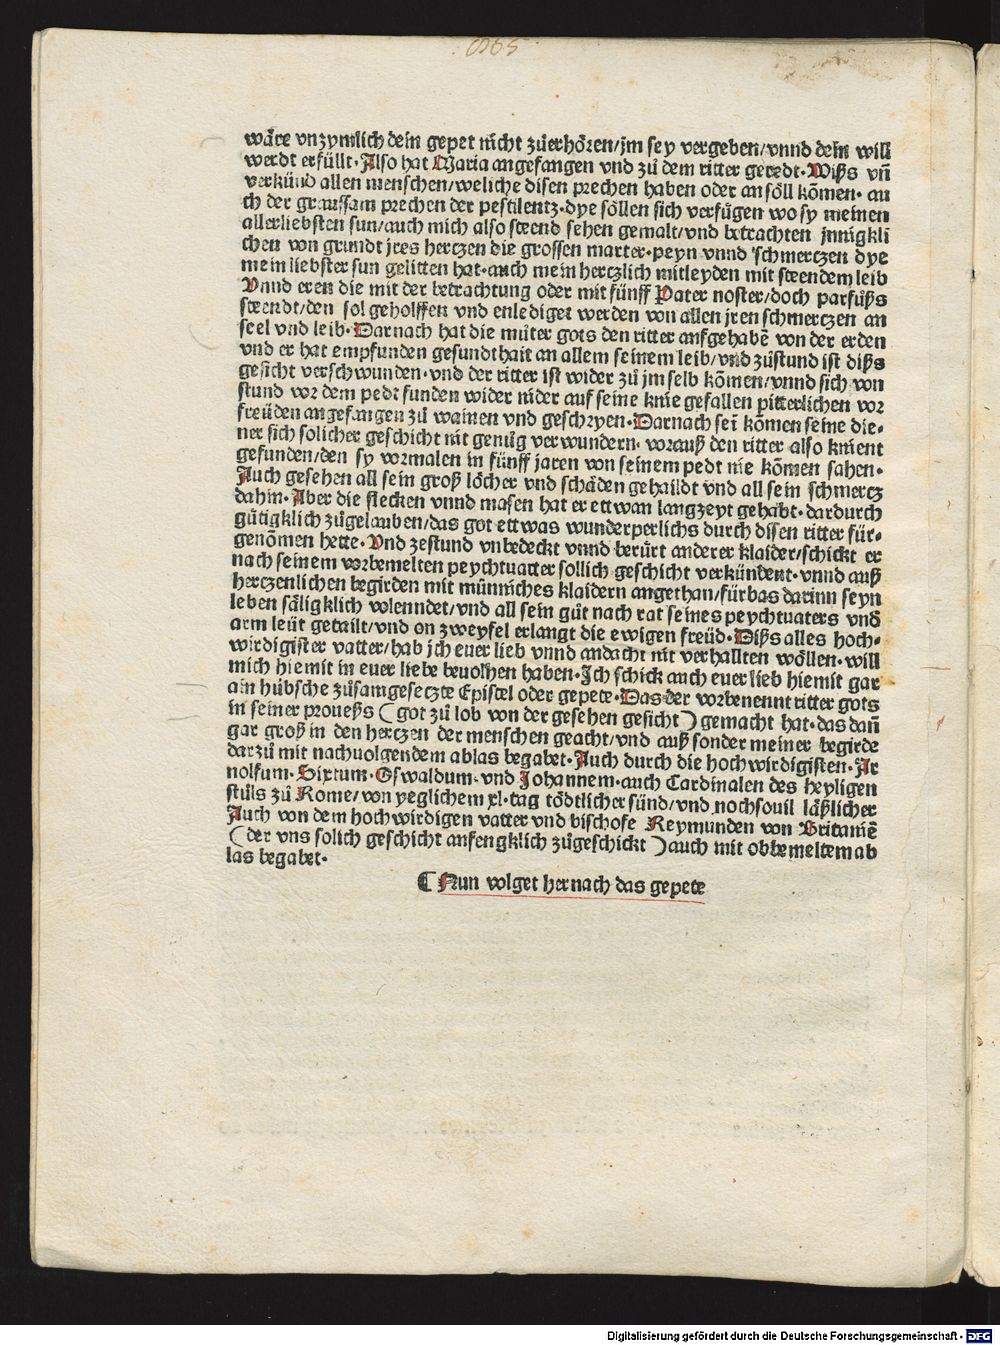 wäre vnzymlich dein gepet nicht zůerhören/jm sey vergeben/vnnd dein will
werdt erfüllt. Also hat Maria angefangen vnd zů dem ritter geredt. Wißs vñ
verkünd allen menschen/weliche disen prechen haben oder an söll kõmen. au
ch der graussam prechen der pestilentz. dye söllen sich verfůgen wo sy meinen
allerliebsten sun/auch mich also steend sehen gemalt/vnd betrachten jnnigkli
chen von grundt jres hertzen die grossen marter. peyn vnnd schmertzen dye
mein liebster sun gelitten hat. auch mein hertzlich mitleyden mit steendem leib
Vnnd eren die mit der betrachtung oder mit fünff Pater noster/doch parfůßs
steendt/den sol geholffen vnd enlediget werden von allen jren schmertzen an
seel vnd leib. Darnach hat die můter gots den ritter aufgehabẽ von der erden
vnd er hat empfunden gesundthait an allem seinem leib/vnd zůstund ist dißs
gesicht verschwunden. vnd der ritter ist wider zů jm selb kõmen/vnnd sich von
stund vor dem pedt funden wider nider auf seine knie gefallen pitterlichen vor
freüden angefangen zů wainen vnd geschryen. Darnach sei kõmen seine die-
ner sich solicher geschicht nit genůg verwundern. vorauß den ritter also knient
gefunden/den sy vormalen in fünff jaren von seinem pedt nie kõmen sahen.
Auch gesehen all sein groß löcher vnd schäden gehaildt vnd all sein schmertz
dahin. Aber die flecken vnnd masen hat er ettwan langzeyt gehabt. dardurch
gütigklich zůgelauben/das got ettwas wunderperlichs durch dissen ritter für-
genõmen hette. Vnd zestund vnbedeckt vnnd berürt anderer klaider/schickt er
nach seinem vorbemelten peychtuatter sollich geschicht verkündent. vnnd auß
hertzenlichen begirden mit münniches klaidern angethan/fürbas darinn seyn
leben säligklich volenndet/vnd all sein gůt nach rat seines peychtuaters vnd
arm leüt getailt/vnd on zweyfel erlangt die ewigen freüd. Dißs alles hoch-
wirdigister vatter/hab jch euer lieb vnnd andacht nit verhallten wöllen. will
mich hiemit in euer liebe beuolhen haben. Ich schick auch euer lieb hiemit gar
ain hübsche zůsamgesetzte Epistel oder gepete. Das der vorbenennt ritter gots
in seiner proueßs (got zů lob von der gesehen gesicht) gemacht hat. das dañ
gar groß in den hertzen der menschen geacht/vnd auß sonder meiner begirde
darzů mit nachuolgendem ablas begabet. Auch durch die hochwirdigisten. Ar
nolfum. Sixtum. Oswaldum. vnd Johannem. auch Cardinalen des heyligen
stůls zů Rome/von yeglichem xl. tag tödtlicher sünd/vnd nochsouil läßlicher
Auch von dem hochwirdigen vatter vnd bischofe Reymunden von Britaniẽ
(der vns solich geschicht anfengklich zůgeschickt) auch mit obbemeltem ab
las begabet.
⸿ Nun volget hernach das gepete
Digitalisierung gefördert durch die Deutsche Forschungsgemeinschaft - DFG